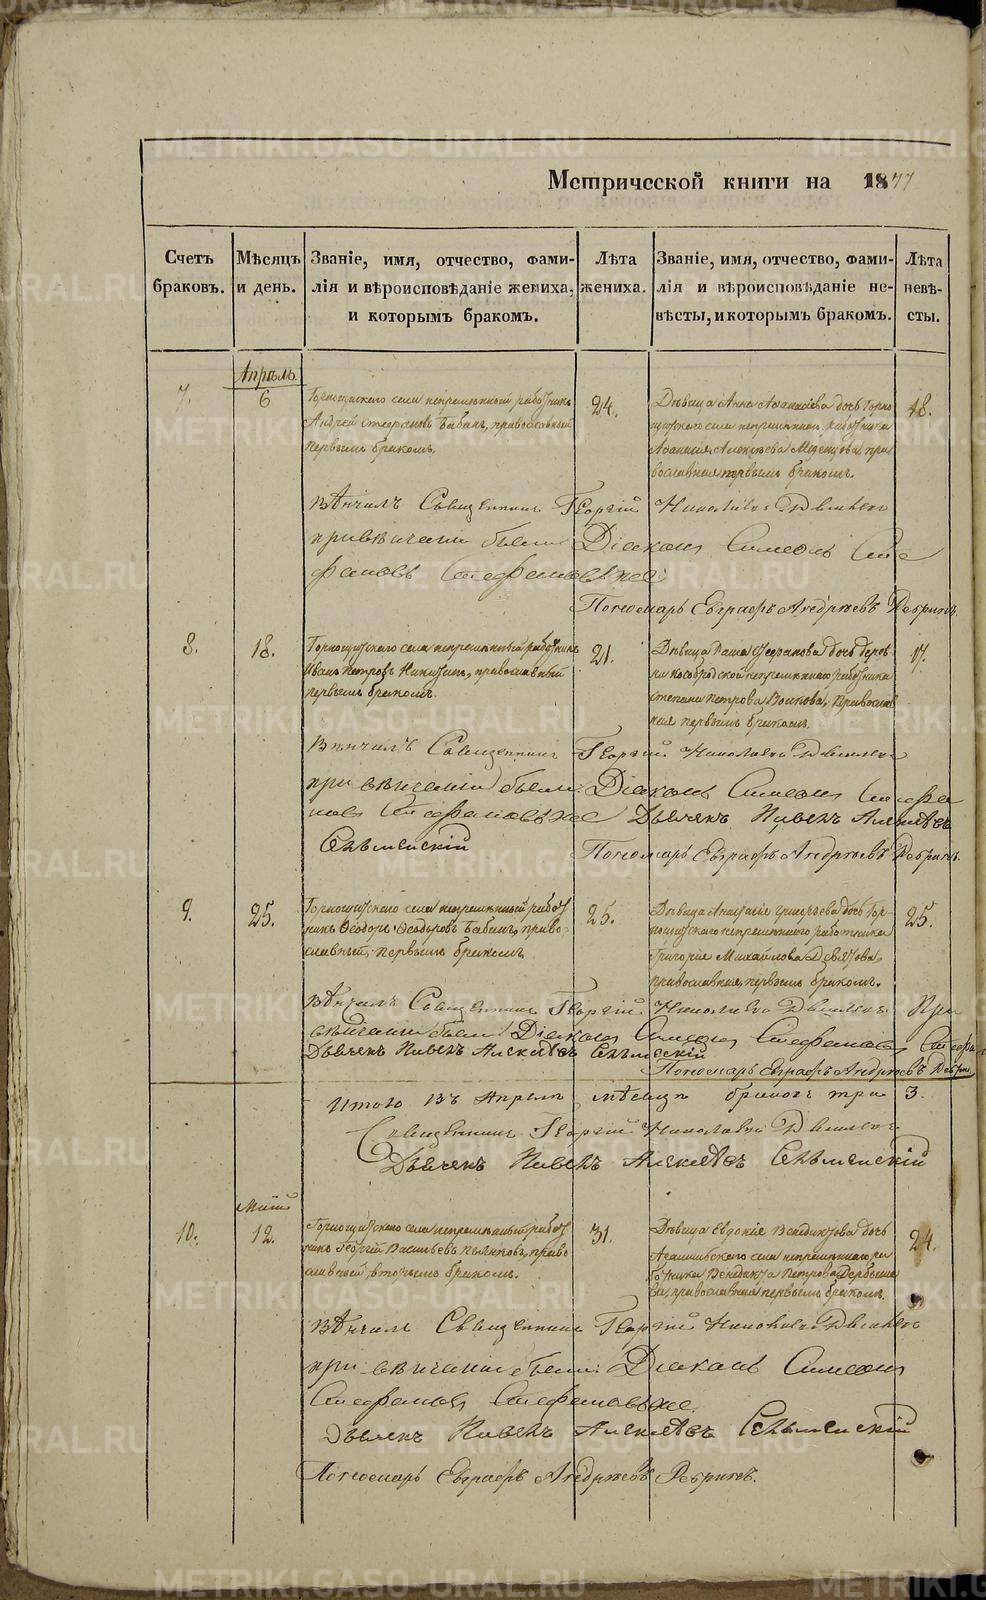 METRIKI.GASO-URAL.RU
Метрической книги на 1877
Счетъ браковъ.
Мѣсяцъ и день.
Званіе, имя, отчество, фами-
лія и вѣроисповѣданіе жениха,
и которымъ бракомъ.
Лѣта
жениха.
Званіе, имя, отчество, фами-
лія и вѣроисповѣданіе не-
вѣсты, и которымъ бракомъ.
Лѣта
невѣ-
сты.
Апрѣль
7.
6
Горнощитскаго села непремѣнный работникъ
Андрей Стефановъ Бабинъ, православный
первымъ бракомъ.
24.
Дѣвица Анна Афанасіева дочь Горно
щитскаго села непремѣннаго работника
Афанасія Алексѣева пра
вославная первымъ бракомъ.
18.
Вѣнчалъ Священникъ Георгій Николаевъ
при вѣнчаніи были Діаконъ Симеонъ Сте
фановъ
Пономарь Евграфъ Андреевъ Ребринъ.
8.
18.
Горнощитскаго села непремѣнный работникъ
Иванъ Петровъ Никитинъ, православный
первымъ бракомъ.
21.
Дѣвица Стефанова дочь дерев
ни Кособродской непремѣннаго работника
Степана Петрова Волкова, Православ
ная первымъ бракомъ.
17.
Вѣнчалъ Священникъ Георгій Николаевъ
при вѣнчаніи были: Діаконъ Симеонъ Стефа
новъ Дьячекъ Павелъ Алексѣевъ
Пономарь Евграфъ Андреевъ Ребринъ.
9.
25.
Горнощитскаго села непремѣнный работ
никъ Ѳеодоръ Ѳеодоровъ Бабинъ, право-
славный, первымъ бракомъ
25.
Дѣвица Анастасія Григорьева дочь Гор-
нощитскаго непремѣннаго работника
Григорія Михайлова Девятова,
православная, первымъ бракомъ.
25.
Вѣнчалъ Священникъ Георгій Николаевъ При
вѣнчаніи были Діаконъ Симеонъ Стефановъ
Дьячекъ Павелъ Алексѣевъ
Пономарь Евграфъ Андреевъ Ребри
Итого въ Апрѣлѣ мѣсяцѣ браковъ три 3.
Священникъ Георгій Николаевъ
Дьячекъ Павелъ Алексѣевъ
Маій
10.
12.
Горнощитскаго села непремѣнный работ
никъ Георгій Васильевъ Пьянковъ, право
славный, вторымъ бракомъ.
31.
Дѣвица Евдокія Венедиктова дочь
села непремѣннаго ра
ботника Венедикта Петрова
ва, православная первымъ бракомъ.
24.
Вѣнчалъ Священникъ Георгій Николаевъ
при вѣнчаніи были: Діаконъ Симеонъ
Стефановъ
Дьячекъ Павелъ Алексѣевъ
Пономарь Евграфъ Андреевъ Ребринъ.